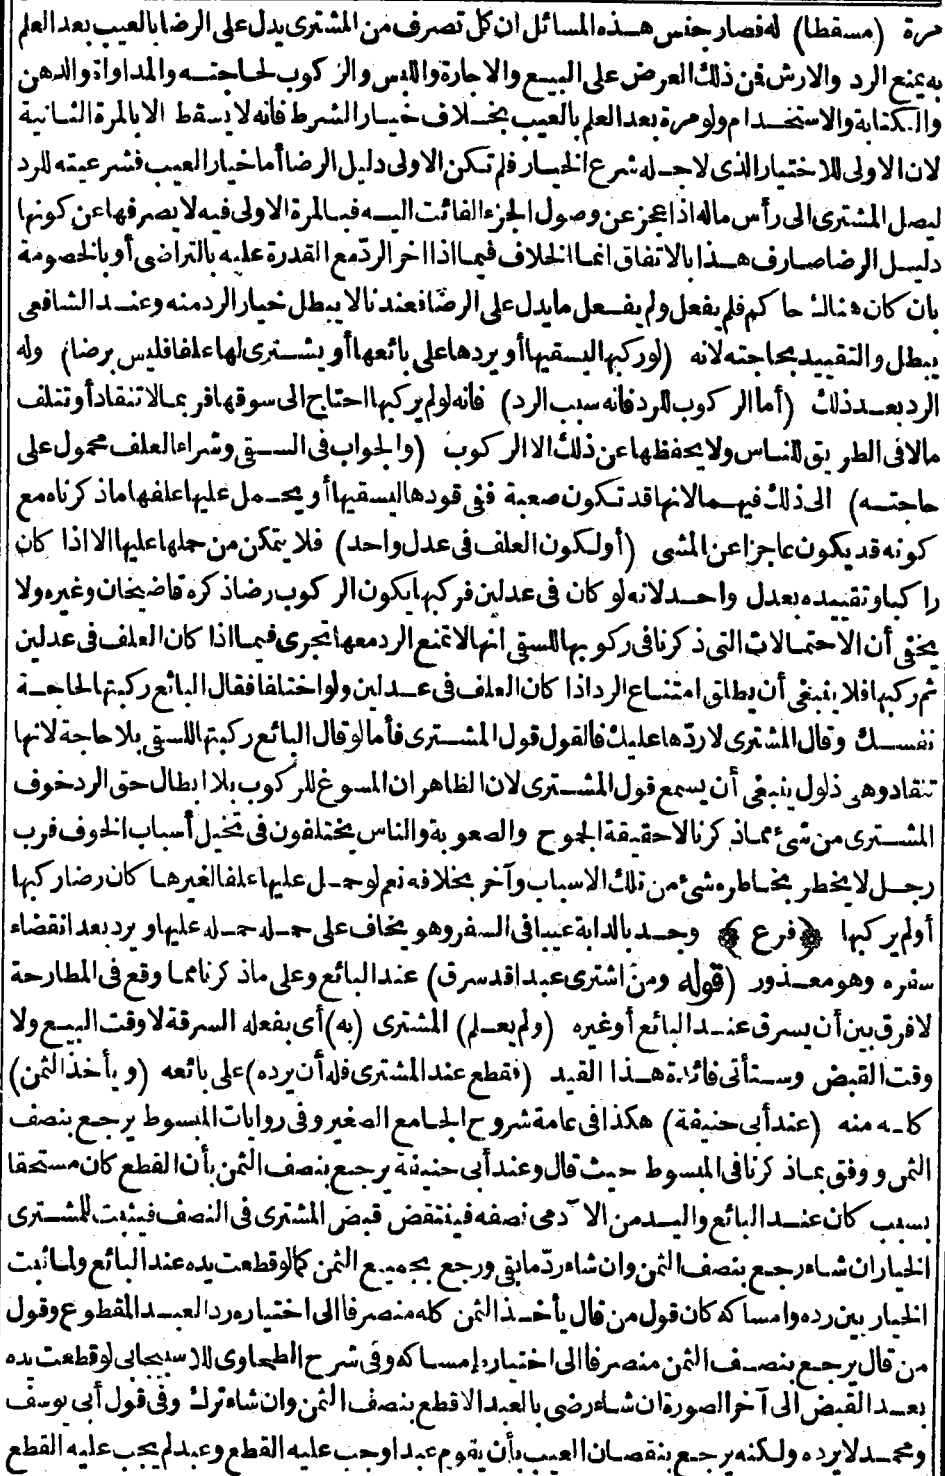 مرة (مسقطا) له فصار جنس هذه المسائل ان كل تصرف من المشترى يدل على الرضا بالعيب بعد العلم
به يمنع الرد والارش فمن ذلك العرض على البيع والاجارة واللبس والركوب لحاجته والمداواة والدهن
والكتابة والاستخدام ولو مرة بعد العلم بالعيب بخلاف خيار الشرط فانه لا يسقط الا بالمرة الثانية
لان الاولى للاختيار الذى لاجله شرع الخيار فلم تكن الاولى دليل الرضا أما خيار العيب فشرعيته للرد
ليصل المشترى الى رأس ماله اذا عجز عن وصول الجزء الفائت اليه فبالمرة الاولى فيه لا يصرفها عن كونها
دليل الرضا صارف هذا بالاتفاق انما الخلاف فيما اذا اخر الرد مع القدرة عليه بالتراضى أو بالخصومة
بان كان هناك حاكم فلم يفعل ولم يفعل ما يدل على الرضا فعندنا لا يبطل خيار الرد منه وعند الشافعى
يبطل والتقييد بحاجته لانه (لو ركبها ليسقيها أو يردها على بائعها أو يشترى لها علفا فليس برضا) وله
الرد بعد ذلك (أما الركوب للرد فانه سبب الرد) فانه لو لم يركبها احتاج الى سوقها فربما لا تنقاد أو تتلف
مالا فى الطريق للناس ولا يحفظها عن ذلك الا الركوب (والجواب فى السقى وشراء العلف محمول على
حاجته) الى ذلك فيهما لانها قد تكون صعبة ففى قودها ليسقيها أو يحمل عليها علفها ما ذكرناه مع
كونه قد يكون عاجزا عن المشى (أو لكون العلف فى عدل واحد) فلا يتمكن من حملها عليها الا اذا كان
راكبا وتقييده بعدل واحد لانه لو كان فى عدلين فركبها يكون الركوب رضا ذكره قاضيخان وغيره ولا
يخفى أن الاحتمالات التى ذكرنا فى ركوبها للسقى انها لا تمنع الرد معها تجرى فيما اذا كان العلف فى عدلين
ثم ركبها فلا ينبغى أن يطلق امتناع الرد اذا كان العلف فى عدلين ولو اختلفا فقال البائع ركبتها لحاجة
نفسك وقال المشترى لا ردها عليك فالقول قول المشترى فأما لو قال البائع ركبتها للسقى بلا حاجة لانها
تنقاد وهى ذلول ينبغى أن يسمع قول المشترى لان الظاهر ان المسوغ للركوب بلا ابطال حق الرد خوف
المشترى من شئ مما ذكرنا لا حقيقة الجموح والصعوبة والناس يختلفون فى تخيل أسباب الخوف فرب
رجل لا يخطر بخاطره شئ من تلك الاسباب وآخر بخلافه نعم لو حمل عليها علفا لغيرها كان رضا ركبها
أو لم يركبها ﴿فرع﴾ وجد بالدابة عيبا فى السفر وهو يخاف على حمله حمله عليها ويرد بعد انقضاء
سفره وهو معذور (قوله ومن اشترى عبدا قد سرق) عند البائع وعلى ما ذكرنا مما وقع فى المطارحة
لا فرق بين أن يسرق عند البائع أو غيره (ولم يعلم) المشترى (به) أى بفعله السرقة لا وقت البيع ولا
وقت القبض وستأتى فائدة هذا القيد (فقطع عند المشترى فله أن يرده) على بائعه (ويأخذ الثمن)
كله منه (عند أبى حنيفة) هكذا فى عامة شروح الجامع الصغير وفى روايات المبسوط يرجع بنصف
الثمن ووفق بما ذكرنا فى المبسوط حيث قال وعند أبى حنيفة يرجع بنصف الثمن بأن القطع كان مستحقا
بسبب كان عند البائع واليد من الآدمى نصفه فينتقض قبض المشترى فى النصف فيثبت للمشترى
الخيار ان شاء رجع بنصف الثمن وان شاء رد ما بقى ورجع بجميع الثمن كما لو قطعت يده عند البائع ولما ثبت
الخيار بين رده وامساكه كان قول من قال يأخذ الثمن كله منصرفا الى اختياره رد العبد المقطوع وقول
من قال يرجع بنصف الثمن منصرفا الى اختياره إمساكه وفى شرح الطحاوى للاسبيجابى لو قطعت يده
بعد القبض الى آخر الصورة ان شاء رضى بالعبد الاقطع بنصف الثمن وان شاء ترك وفى قول أبى يوسف
ومحمد لا يرده ولكنه يرجع بنقصان العيب بأن يقوم عبدا وجب عليه القطع وعبد لم يجب عليه القطع